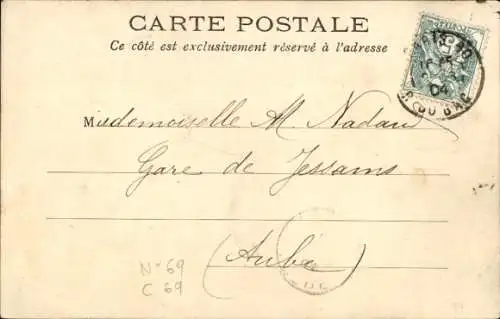 CARTE POSTALE
Ce côté est exclusivement réservé à l'adresse
04
R. DU BAC
Mademoiselle M. Nadau
Gare de Jessains
(Aube)
N° 69
C 69